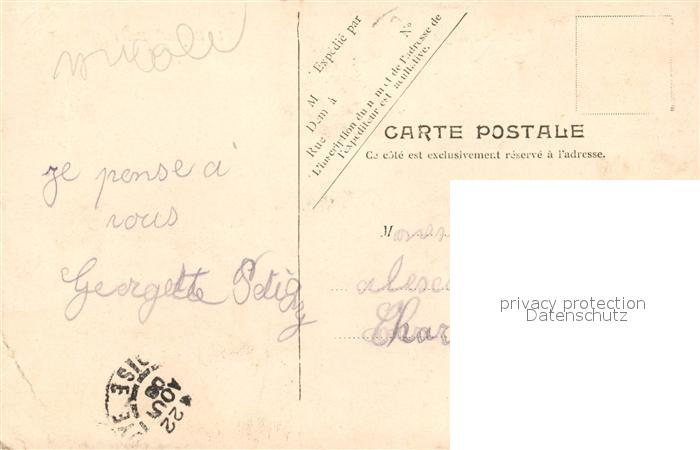 nicole
je pense à
vous
Georgette
Expédié par
M
Nº
Demt à
Rue
L'inscription du nom et de l'adresse de
l'expéditeur est facultative.
CARTE POSTALE
Ce côté est exclusivement réservé à l'adresse.
M
Char
privacy protection
Datenschutz
OISE
22
AOUT